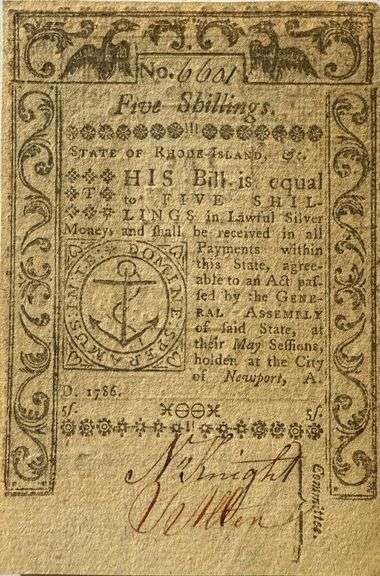 No. 6601
Five Shillings.
STATE OF RHODE-ISLAND, &c.
THIS Bill is equal
to FIVE SHIL-
LINGS in Lawful Silver
Money, and shall be received in all
Payments within
this State, agree-
able to an Act paſ-
ſed by the GENE-
RAL ASSEMBLY
of ſaid State, at
their May Seſſions,
holden at the City
of Newport, A.
D. 1786.
IN TE DOMINE SPERAMUS
5ſ. 5ſ.
Knight
Committee.